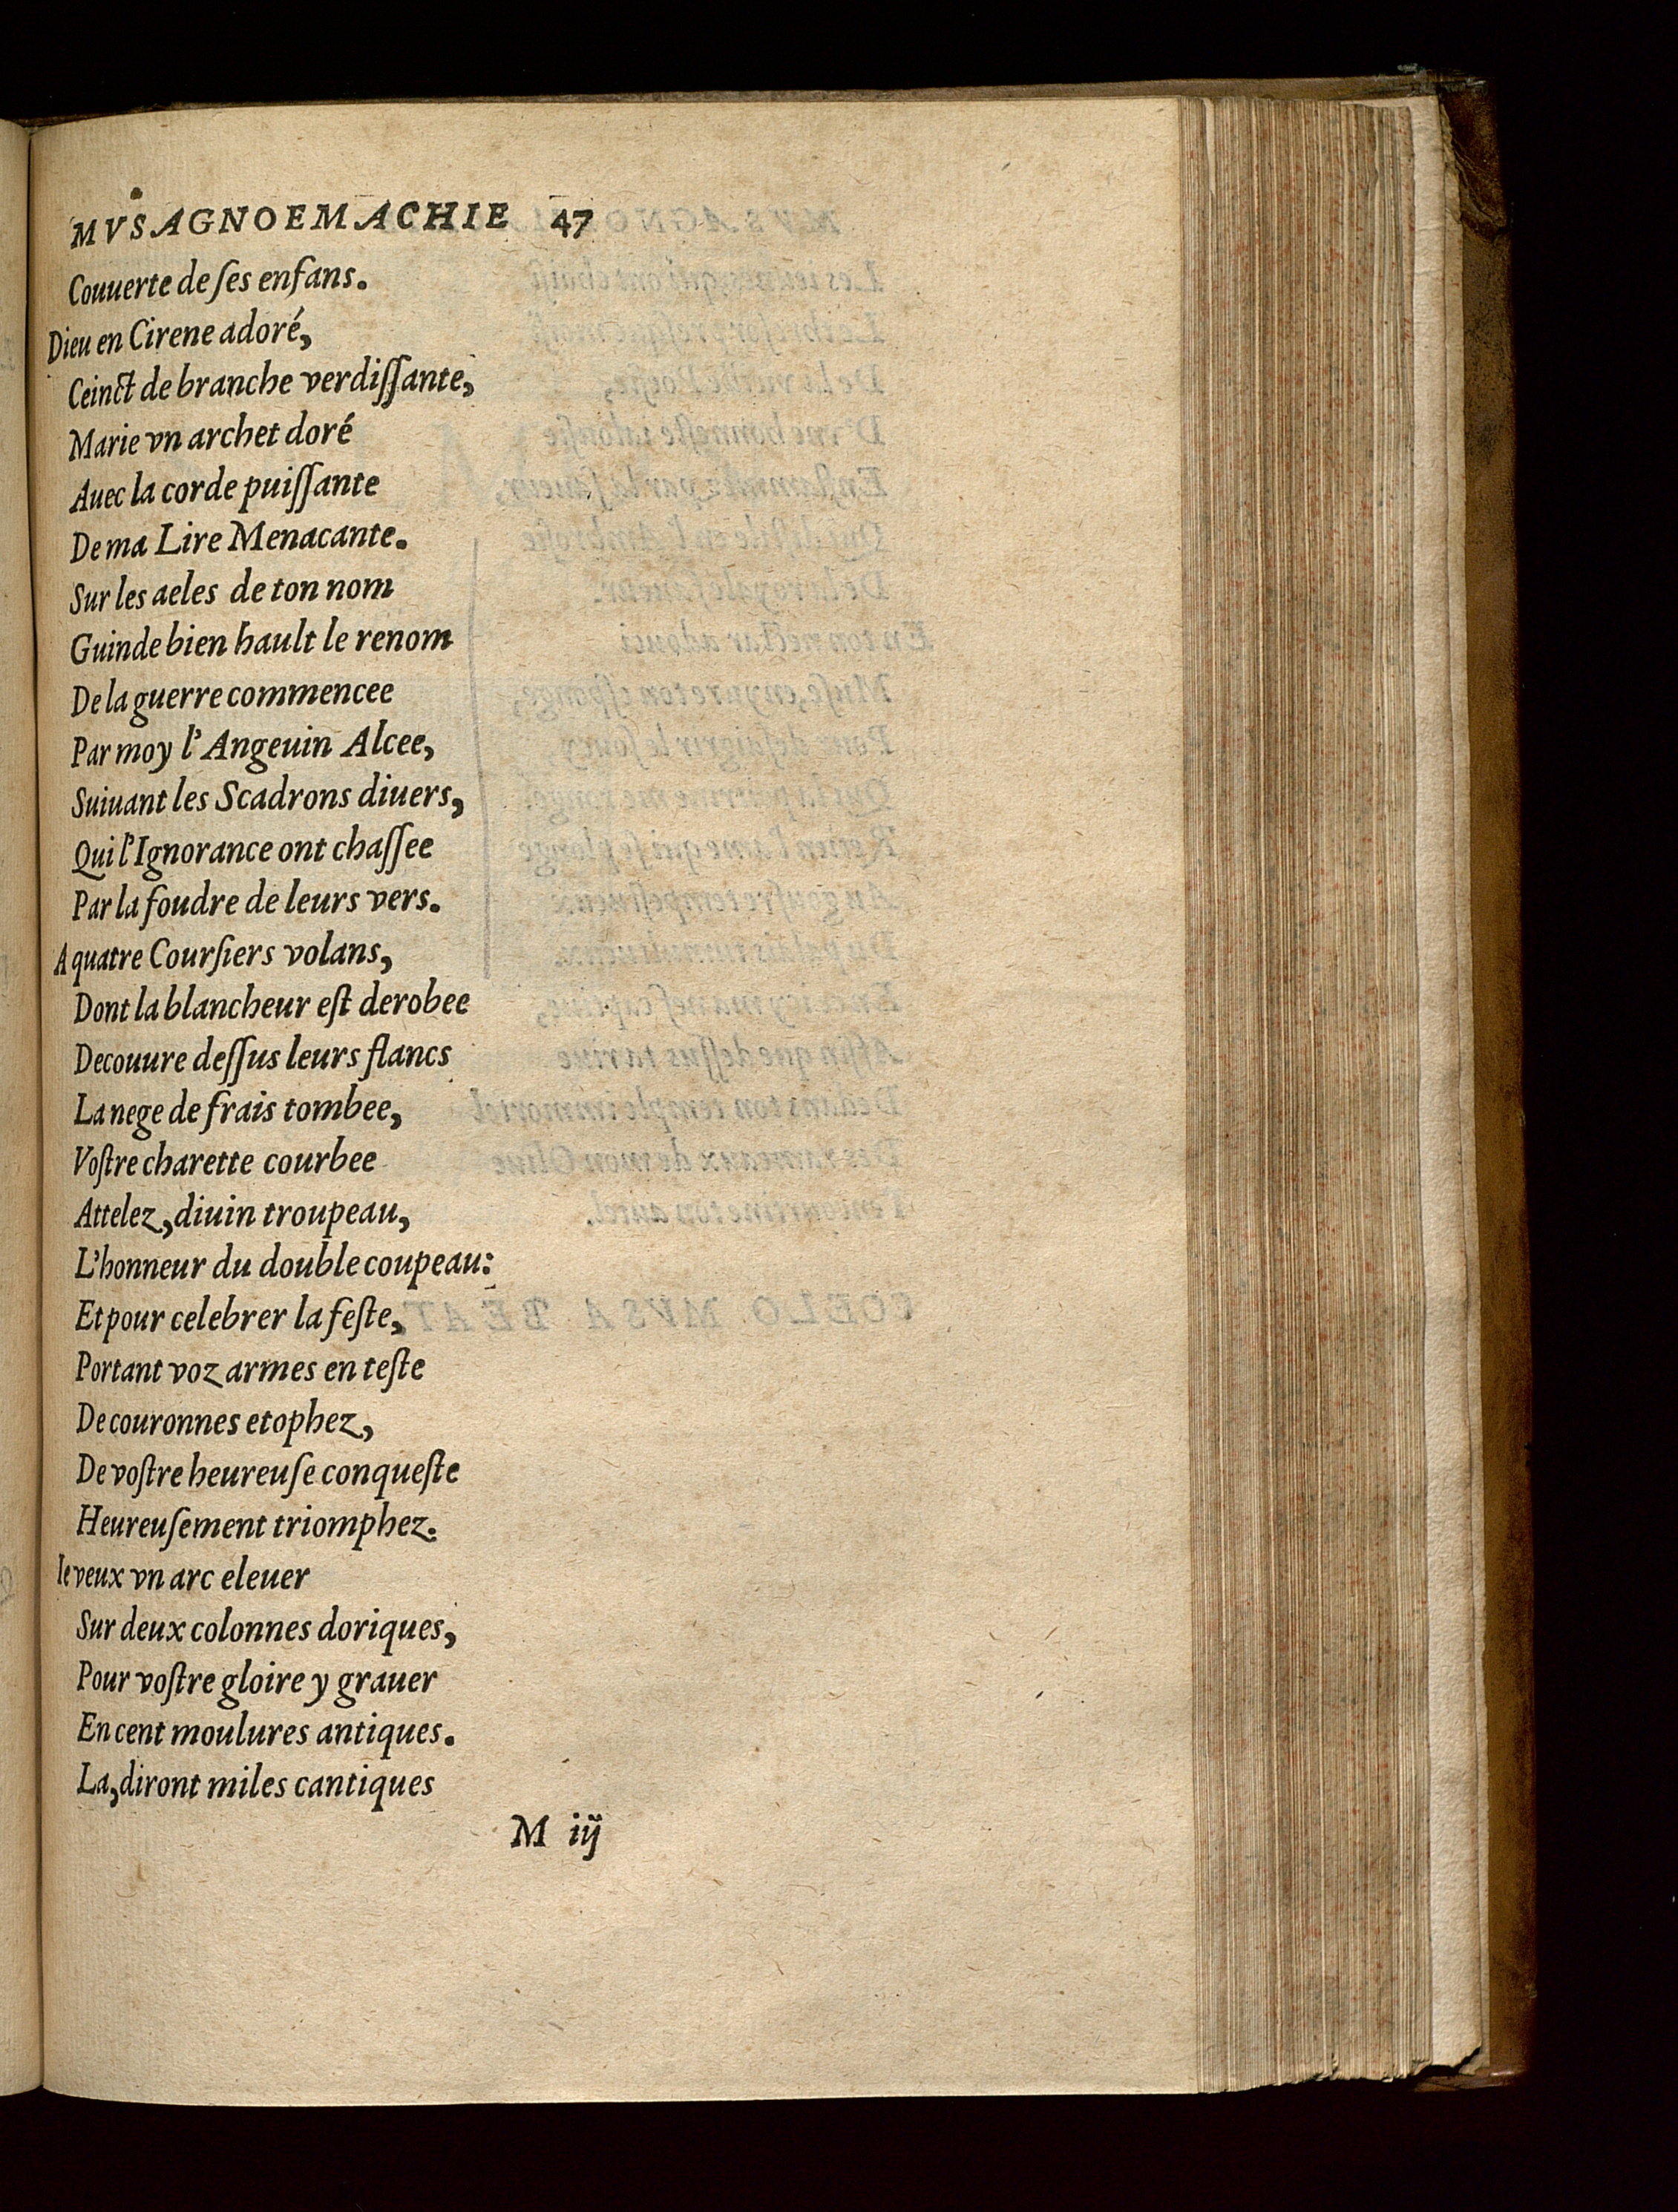 MVSAGNOEMACHIE 47
Couuerte de ſes enfans.
Dieu en Cirene adoré,
Ceinct de branche verdiſſante,
Marie vn archet doré
Auec la corde puiſſante
De ma Lire Menacante.
Sur les aeles de ton nom
Guinde bien hault le renom
De la guerre commencee
Par moy l'Angeuin Alcee,
Suiuant les Scadrons diuers,
Qui l'Ignorance ont chaſſee
Par la foudre de leurs vers.
A quatre Courſiers volans,
Dont la blancheur eſt derobee
Decouure deſſus leurs flancs
La nege de frais tombee,
Voſtre charette courbee
Attelez, diuin troupeau,
L'honneur du double coupeau:
Et pour celebrer la feſte,
Portant voz armes en teſte
De couronnes etophez,
De voſtre heureuſe conqueſte
Heureuſement triomphez.
Ie veux vn arc eleuer
Sur deux colonnes doriques,
Pour voſtre gloire y grauer
En cent moulures antiques.
La, diront miles cantiques
M iij